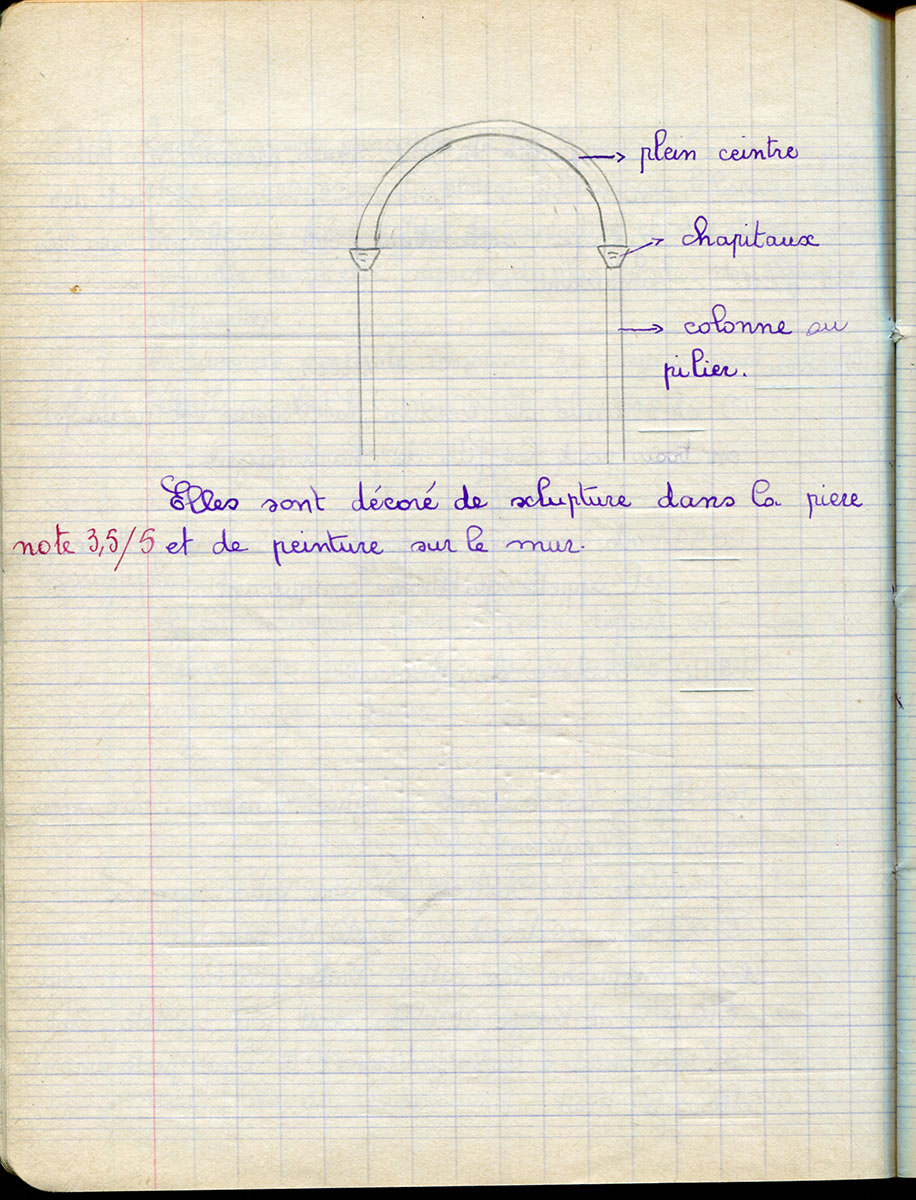 plein ceintre
chapitaux
colonne ou
pilier.
Elles sont décoré de sclupture dans la piere
note 3,5/5 et de peinture sur le mur.